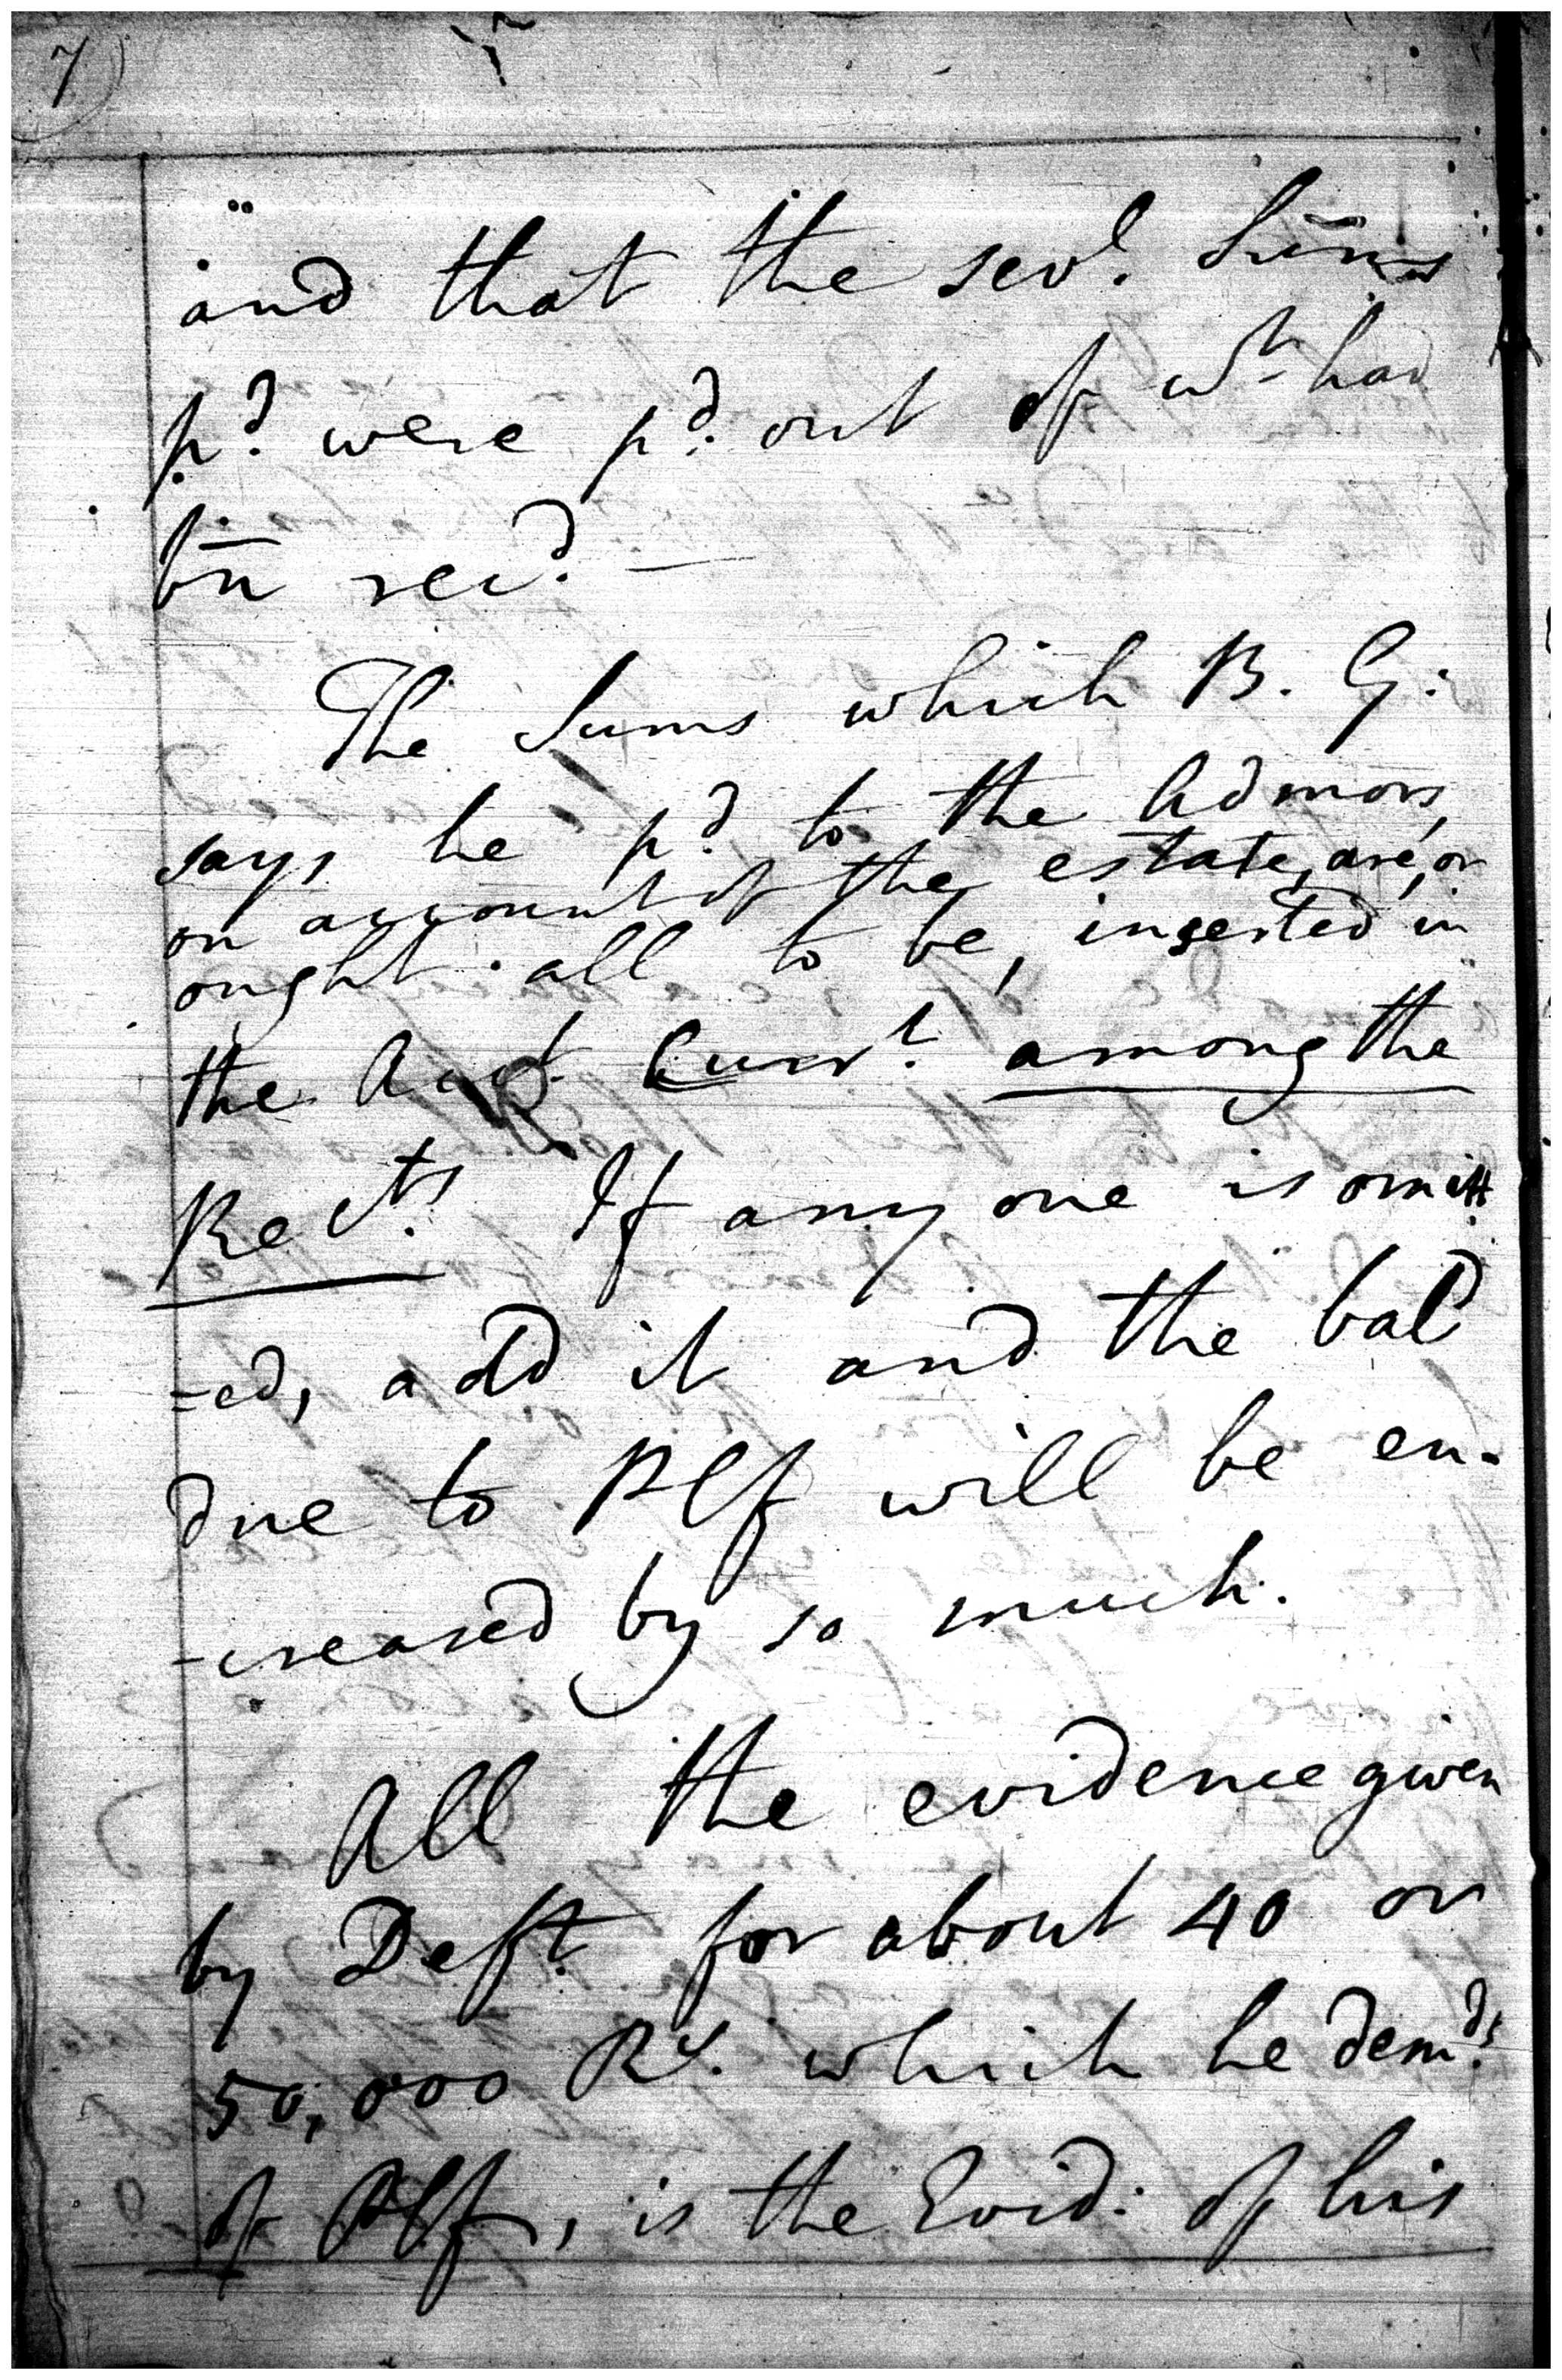 7
and that the sevl. Sums
pd. were pd. out of wh had
bn̄ recd. —
The Sums which B. G:
says he pd. to the Admors,
on account of the estate, are, or
ought all to be, inserted in
the Acct. Currt. among the
Rects. If any one is omitt
-ed, add it and the bal
due to Plf will be en-
-creased by so much.
All the evidence given
by Deft. for about 40 or
50,000 Rs. which he demds.
of Plf, is the Evid: of his